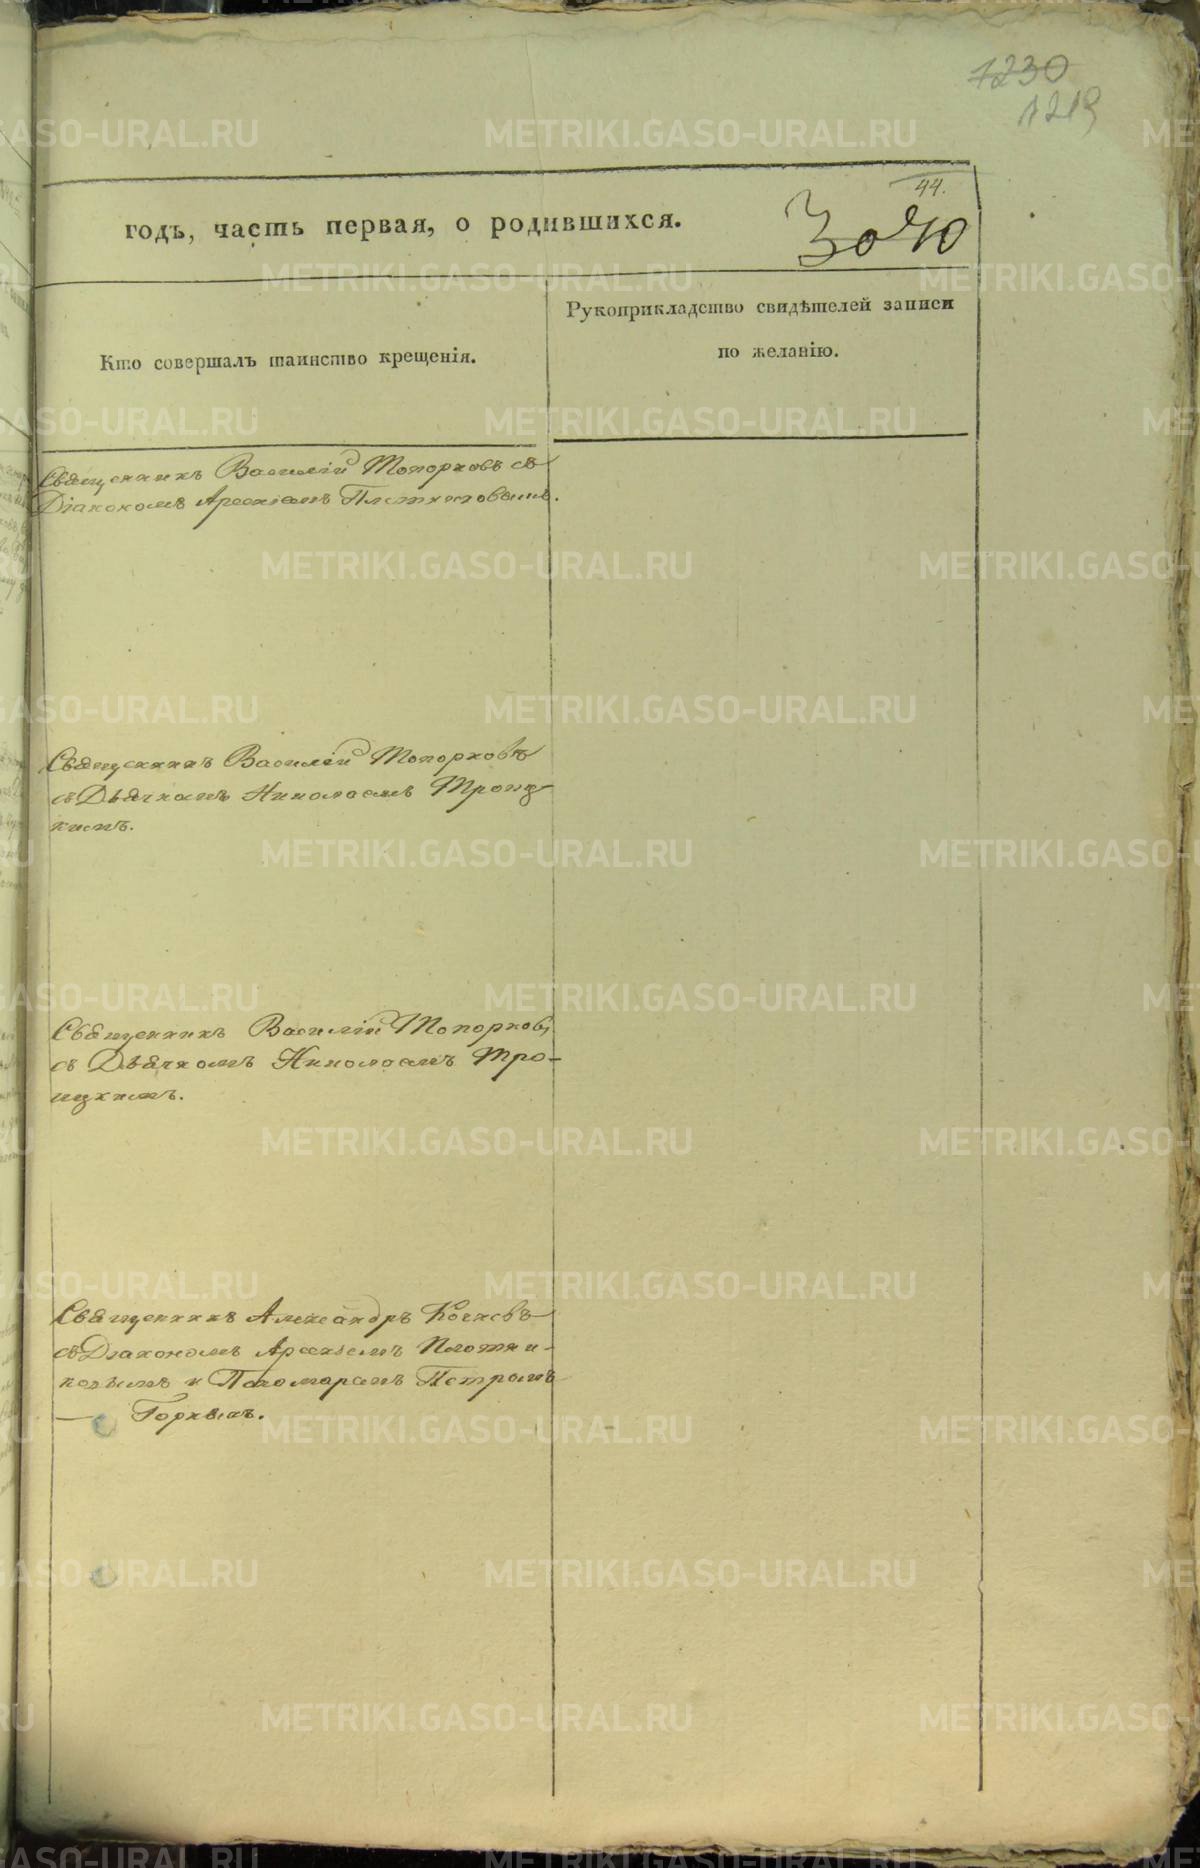 1230
1219
44.
годъ, часть первая, о родившихся.
Кто совершалъ таинство крещенія.
Рукоприкладство свидѣтелей записи
по желанію.
Священникъ Василій Топорковъ съ
Діакономъ Арсеніемъ
Священникъ Василій Топорковъ
съ Дьячкомъ Николаемъ Троиц
кимъ.
Священникъ Василій Топорковъ
съ Дьячкомъ Николаемъ Тро-
ицкимъ.
Священникъ Александръ
съ Діакономъ Арсеніемъ Плотни-
ковымъ и Пономаремъ Петромъ
METRIKI.GASO-URAL.RU